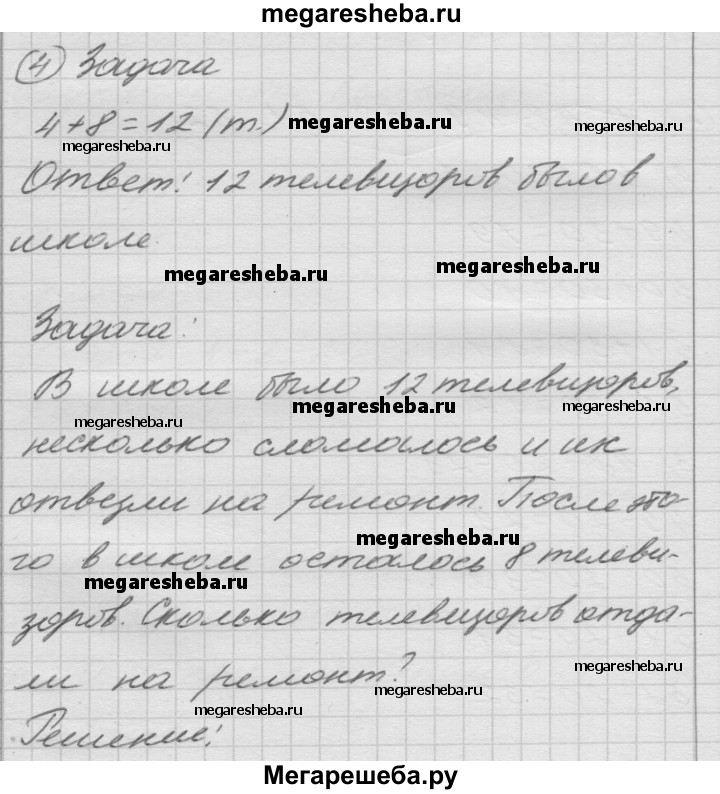 megaresheba.ru
④ Задача
4+8=12 (т.) megaresheba.ru megaresheba.ru
megaresheba.ru
Ответ: 12 телевизоров было в
школе.
megaresheba.ru megaresheba.ru
Задача:
В школе было 12 телевизоров,
megaresheba.ru megaresheba.ru megaresheba.ru
несколько сломалось и их
отвезли на ремонт. После это-
megaresheba.ru
го в школе осталось 8 телеви-
megaresheba.ru
зоров. Сколько телевизоров отда-
ли на ремонт? megaresheba.ru
megaresheba.ru
megaresheba.ru
Решение:
Мегарешеба.ру